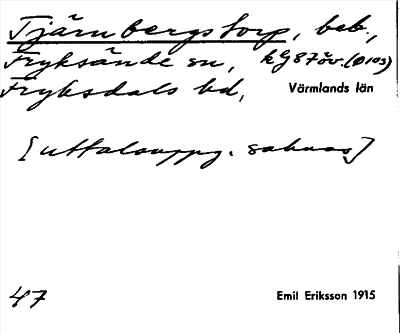 Tjärnbergstorp, beb.,
Fryksände sn, kG87öv. (0105)
Fryksdals hd, Värmlands län
[uttalsuppg. saknas]
47 Emil Eriksson 1915